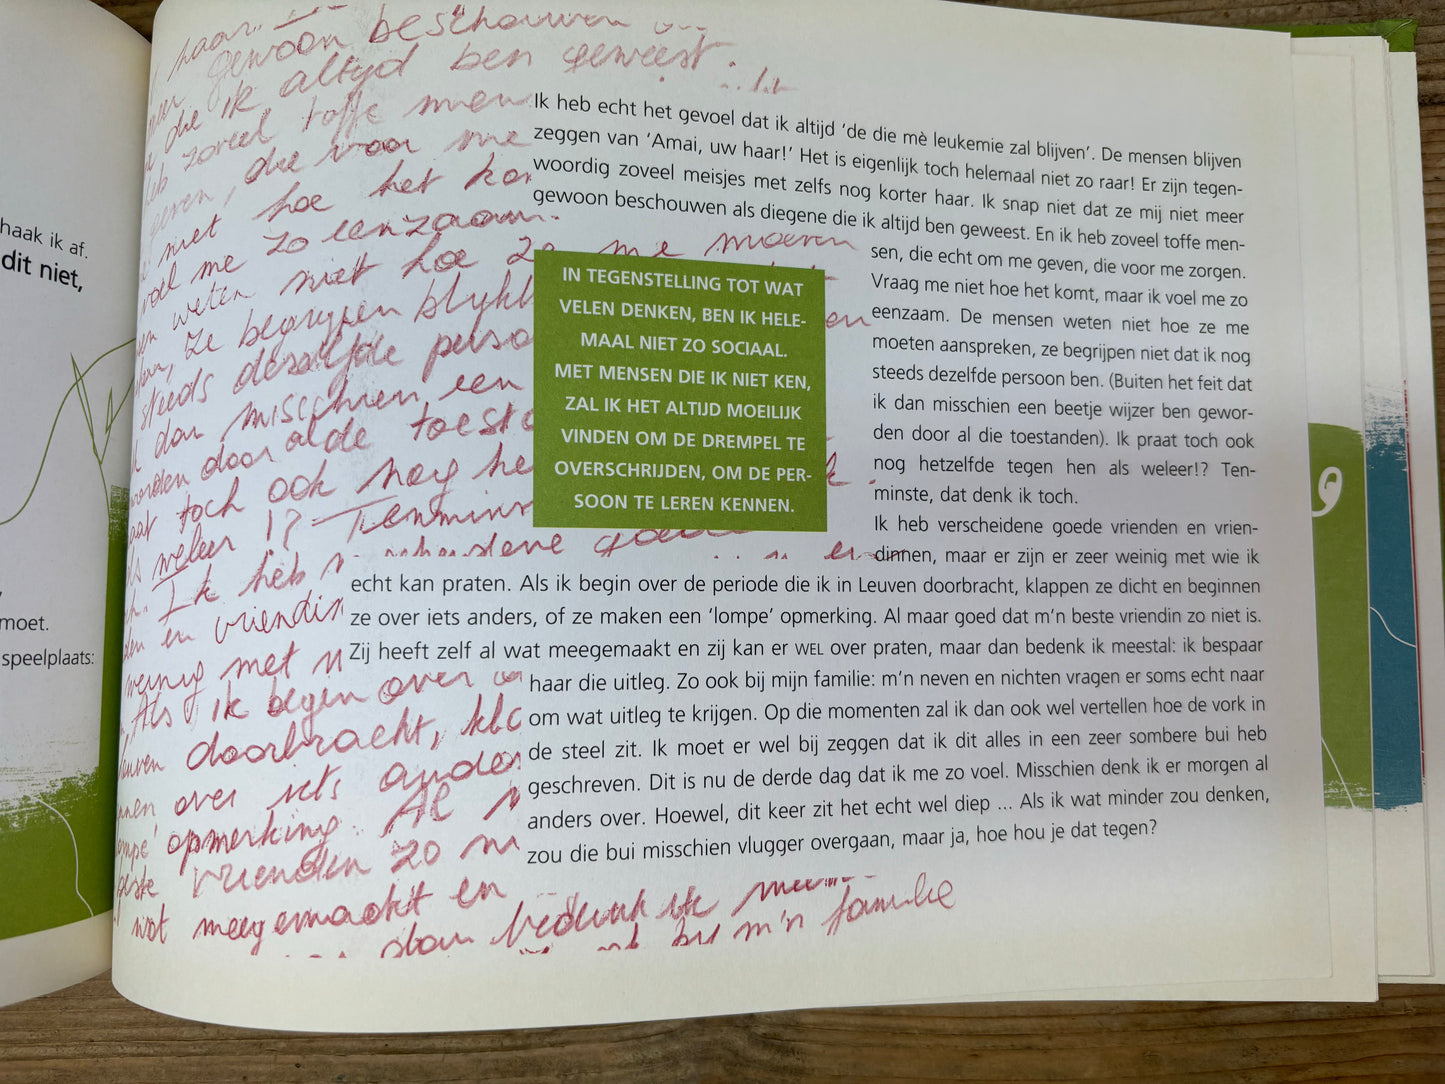 haak ik af.
dit niet,
moet.
speelplaats:
haar...
gewoon beschouwen
die ik altijd ben geweest.
zoveel toffe men
geven, die voor me
niet hoe het kom
voel me zo eenzaam.
weten niet hoe ze me moeten
ze begrijpen blijkb
steeds dezelfde perso
dan misschien een
worden door al de toesta
toch ook nog he
weleer!? Tenmins
Ik heb verscheidene goede
en vriendin
weinig met
Als ik begin over
doorbracht, kla
over iets ander
opmerking. Al
vrienden zo
wat meegemaakt en
dan bedenk ik
bij m'n familie
Ik heb echt het gevoel dat ik altijd ‘de die mè leukemie zal blijven’. De mensen blijven
zeggen van ‘Amai, uw haar!’ Het is eigenlijk toch helemaal niet zo raar! Er zijn tegen-
woordig zoveel meisjes met zelfs nog korter haar. Ik snap niet dat ze mij niet meer
gewoon beschouwen als diegene die ik altijd ben geweest. En ik heb zoveel toffe men-
sen, die echt om me geven, die voor me zorgen.
Vraag me niet hoe het komt, maar ik voel me zo
eenzaam. De mensen weten niet hoe ze me
moeten aanspreken, ze begrijpen niet dat ik nog
steeds dezelfde persoon ben. (Buiten het feit dat
ik dan misschien een beetje wijzer ben gewor-
den door al die toestanden). Ik praat toch ook
nog hetzelfde tegen hen als weleer!? Ten-
minste, dat denk ik toch.
Ik heb verscheidene goede vrienden en vrien-
dinnen, maar er zijn er zeer weinig met wie ik
echt kan praten. Als ik begin over de periode die ik in Leuven doorbracht, klappen ze dicht en beginnen
ze over iets anders, of ze maken een ‘lompe’ opmerking. Al maar goed dat m’n beste vriendin zo niet is.
Zij heeft zelf al wat meegemaakt en zij kan er WEL over praten, maar dan bedenk ik meestal: ik bespaar
haar die uitleg. Zo ook bij mijn familie: m’n neven en nichten vragen er soms echt naar
om wat uitleg te krijgen. Op die momenten zal ik dan ook wel vertellen hoe de vork in
de steel zit. Ik moet er wel bij zeggen dat ik dit alles in een zeer sombere bui heb
geschreven. Dit is nu de derde dag dat ik me zo voel. Misschien denk ik er morgen al
anders over. Hoewel, dit keer zit het echt wel diep ... Als ik wat minder zou denken,
zou die bui misschien vlugger overgaan, maar ja, hoe hou je dat tegen?
IN TEGENSTELLING TOT WAT
VELEN DENKEN, BEN IK HELE-
MAAL NIET ZO SOCIAAL.
MET MENSEN DIE IK NIET KEN,
ZAL IK HET ALTIJD MOEILIJK
VINDEN OM DE DREMPEL TE
OVERSCHRIJDEN, OM DE PER-
SOON TE LEREN KENNEN.